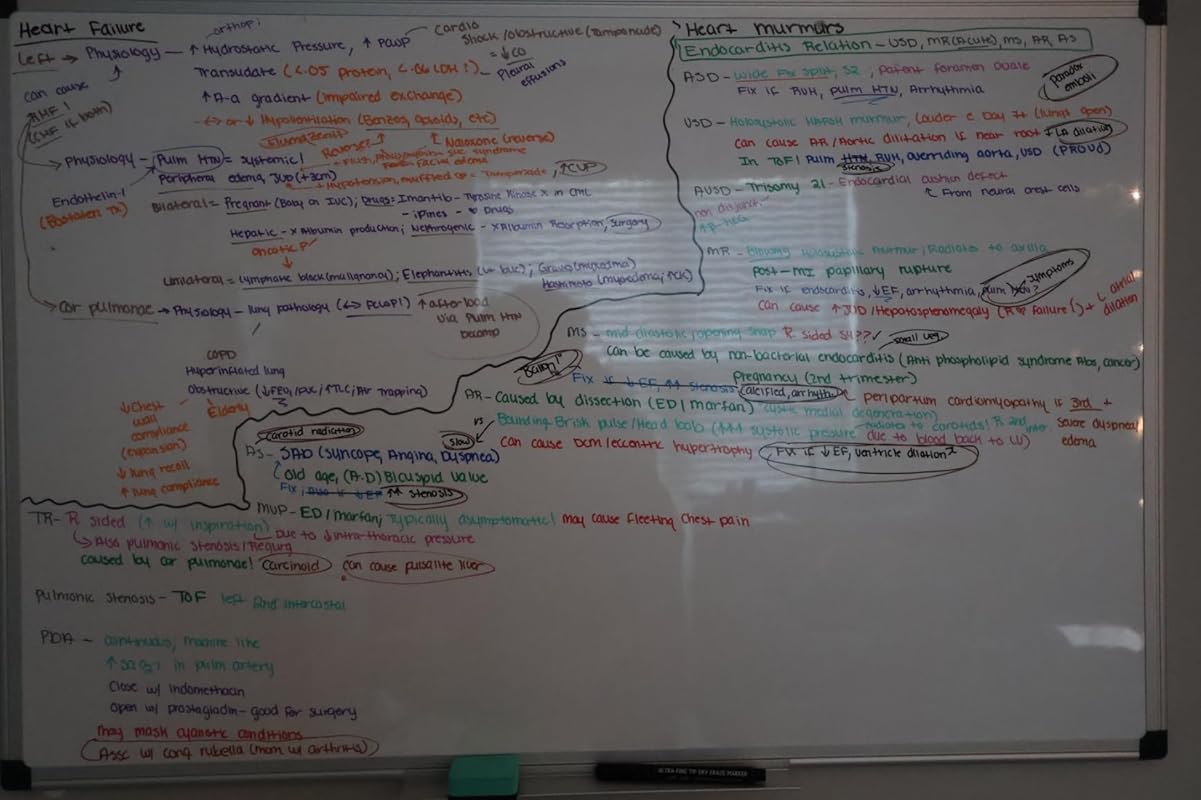 Heart Failure
orthop
Left → Physiology — ↑ Hydrostatic Pressure, ↑ PCWP
Cardio
Shock/obstructive (Tamponade)
= ↓ CO
Transudate (<.05 protein, <.06 LDH!) — Pleural effusions
↑ A-a gradient (impaired exchange)
↔ or ↓ Hypoventilation (Benzos, opioids, etc)
Flumazenil
Reverse?
Naloxone (reverse)
can cause
RHF!
(CHF if both)
Physiology — Pulm HTN = systemic!
facial edema
Peripheral edema, JVD (+3cm)
Hypotension, muffled = Tamponade, ↑CVP
Endothelin-1
(Bosentan Tx)
Bilateral = Pregnant (Baby on IVC); Drugs: Imantib - Tyrosine Kinase X in CML
- ipines - ♥ Drugs
Hepatic - X Albumin production; Nephrogenic - X Albumin Resorption, surgery
oncotic P
Unilateral = Lymphatic block (malignancy); Elephantitis (w. buc); Graves (myxedma)
Hoshimoto (myxpedema, ↑CK)
Cor pulmonae → Physiology - lung pathology (↔ PCWP!) ↑ afterload
via Pulm HTN
COPD
Hyperinflated lung
Obstructive (↓FEV1/FVC; ↑TLC; Air Trapping)
Elderly
↓ Chest
wall
compliance
(expansion)
↓ lung recoil
↑ lung compliance
Heart murmurs
Endocarditis Relation - VSD, MR (Acute), MS, AR, AS
ASD - wide Fix split, S2; patent foramen ovale
Fix if RVH, pulm HTN, Arrhythmia
paradox
emboli
VSD - Holosystolic Harsh murmur, louder @ Day 7+ (lungs open)
can cause AR/Aortic dilitation if near root + LA dilation
In ToF! Pulm HTN, RVH, overriding aorta, VSD (PROVe)
stenosis
AVSD - Trisomy 21 - Endocardial cushion defect
non disjunct
From neural crest cells
MR - Blowing Holosystolic murmur; Radiates to axilla
Post-MI papillary rupture
Fix if endocarditis, ↓EF, arrhythmia, pulm HTN?
symptoms
can cause ↑JVD/Hepatosplenomegaly (R failure!) + L atrial
dilation
MS - mid diastolic; opening snap R sided S4??
small LV
can be caused by non-bacterial endocarditis (Anti phospholipid syndrome Abs, cancer)
Pregnancy (2nd trimester)
Balon
Fix if ↓ EF, ↑↑ stenosis
calcified, arrhyth.
peripartum cardiomyopathy if 3rd +
severe dyspnea/
edema
AR - Caused by dissection (ED/marfan) cystic medial degeneration)
vs
Bounding Brisk pulse/Head bob (↑↑↑ systolic pressure due to blood back to LV)
radiates to carotids! R 2nd inter.
Slow
can cause DCM/eccentric hypertrophy
Fix if ↓ EF, ventricle dilation?
carotid radiation
AS - SAD (Syncope, Angina, Dyspnea)
old age, (A.D) Bicuspid valve
Fix if ↓ EF ↑↑ stenosis
MVP - ED/marfan; Typically asymptomatic! may cause fleeting chest pain
TR - R sided (↑ w/ inspiration)
Due to ↓ intra-thoracic pressure
Also pulmonic stenosis/Regurg
caused by cor pulmonae! Carcinoid can cause pulsatile liver
Pulmonic stenosis - TOF left 2nd intercostal
PDA - continuous; machine like
↑ Sa O2? in pulm artery
Close w/ indomethacin
Open w/ prostagladin - good for surgery
may mask cyanotic conditions
Assc w/ cong rubella (mom w/ arthritis)
ULTRA FINE TIP DRY ERASE MARKER